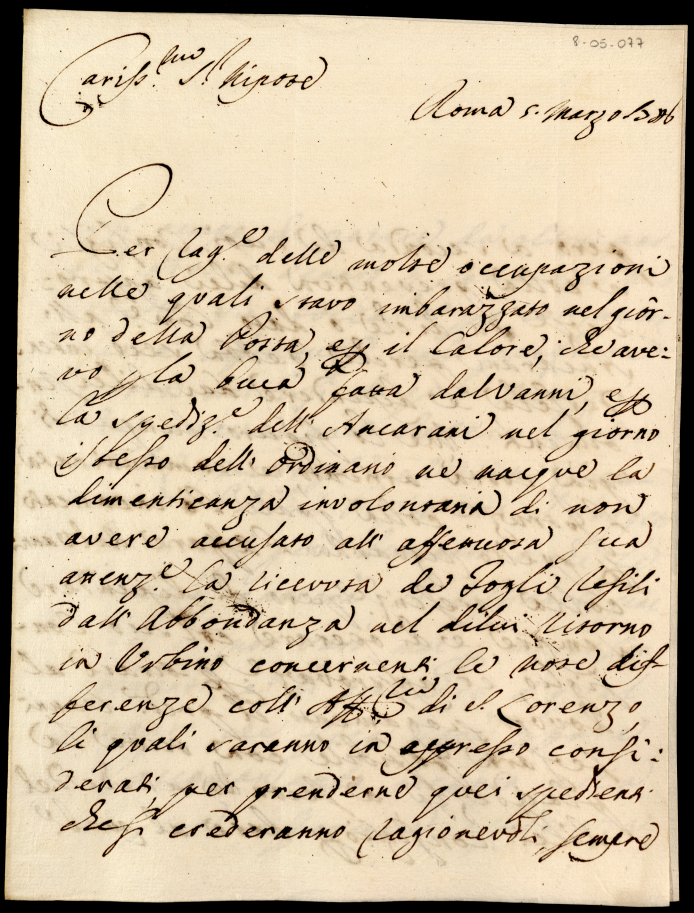 8-05-077
Cariss.mo S.r Nipote
Roma 5. Marzo
Per cag.e delle molte occupazioni
nelle quali stavo imbarazzato nel gior-
no della Posta, e il Calore, che ave-
vo la buca fatta dal Vanni, e
la spediz.e dell' Ancarani nel giorno
istesso dell' ordinario ne nacque la
dimenticanza involontaria di non
avere accusato all' affettuosa sua
attenz.e la ricevuta de Fogli
dall' Abbondanza nel di lui ritorno
in Urbino concernenti le note dif-
ferenze coll' di S. Lorenzo,
li quali saranno in appresso consi-
derati, per prenderne quei spedienti
che si crederanno ragionevoli, sempre